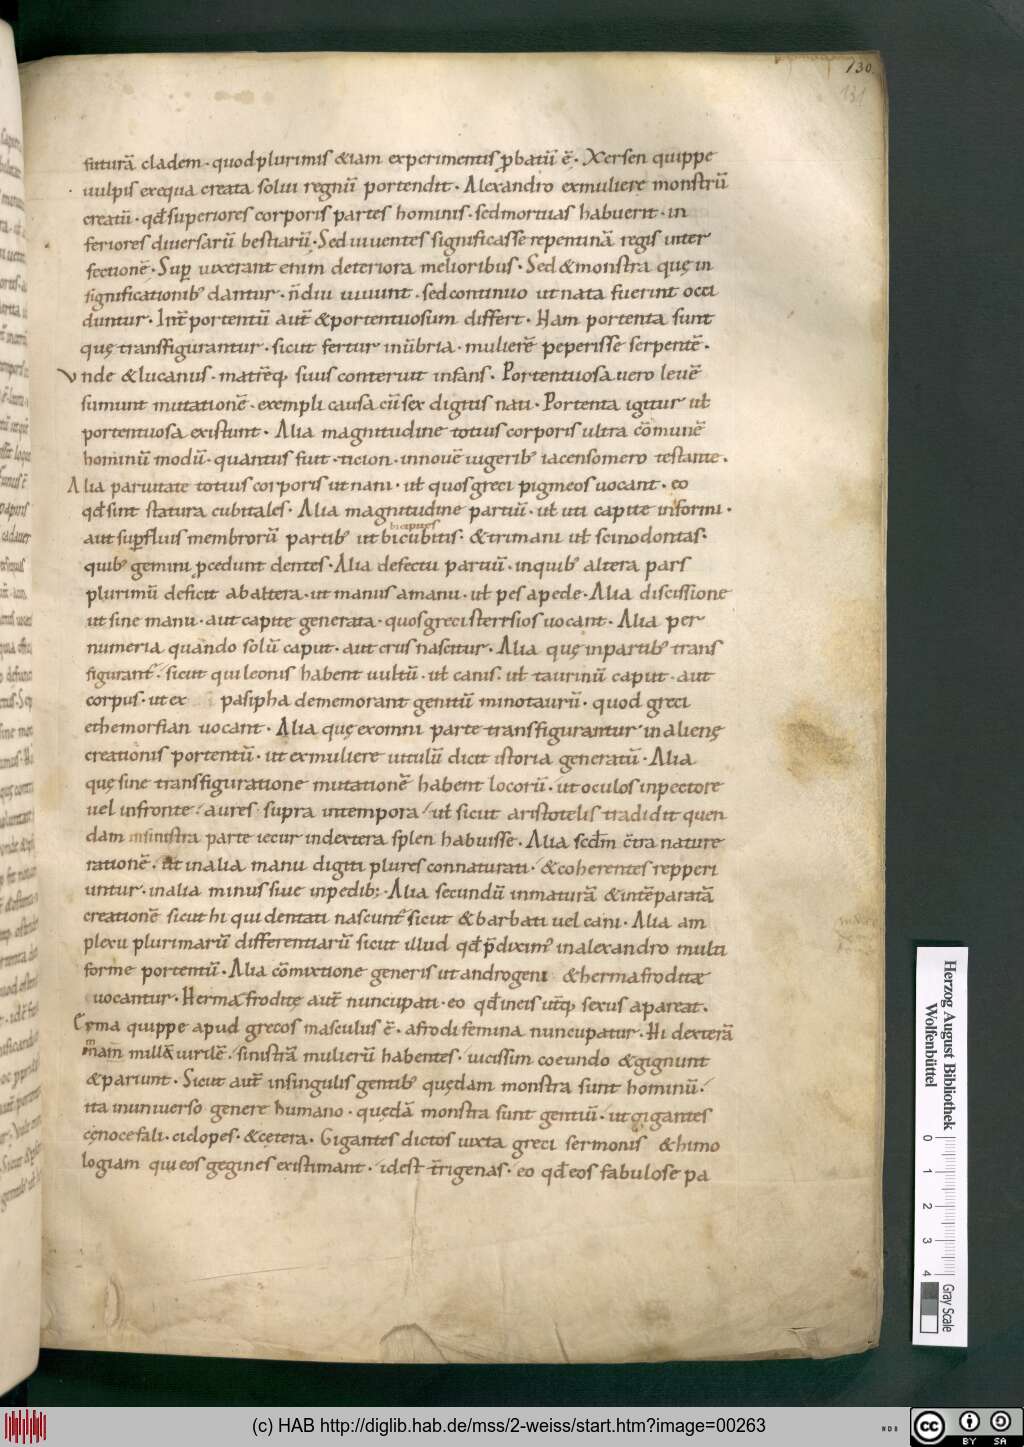 130
131
futurā cladem · quod plurimis &iam experimentis ꝓbatū ē · Xersen quippe
uulpis exequa creata solui regnū portendit · Alexandro exmuliere monstrū
creatū · qđ superiores corporis partes hominis · sed mortuas habuerit · in
feriores diuersarū bestiarū · Sed uiuentes significasse repentinā regis inter
fectionē · Suꝑ uixerant enim deteriora melioribus · Sed &monstra quę in
significationib; dantur · n̄ diu uiuunt · sed continuo ut nata fuerint occi
duntur · Int̄ portentū aut̄ &portentuosum differt · Nam portenta sunt
quę transfigurantur · sicut fertur inūbria · mulierē peperisse serpentē ·
Vnde &lucanus · matrēq; suus conteruit infans · Portentuosa uero leuē
sumunt mutationē · exempli causa cū sex digitis nati · Portenta igitur uł
portentuosa existunt · Alia magnitudine totius corporis ultra cōmunē
hominū modū · quantus fuit · ticion · innouē iugerib; iacens omero testante ·
Alia paruitate totius corporis ut nani · uł quos greci pigmeos uocant · eo
qđ sint statura cubitales · Alia magnitudine partiū · uł uti capite informi ·
bicipites
aut suꝑfluis membrorū partib; ut bicubitis · &trimani uł scinodontas ·
quib; gemini ꝓcedunt dentes · Alia defectu partiū · inquib; altera pars
plurimū deficit ab altera · ut manus amanu · uł pes apede · Alia discissione
ut sine manu · aut capite generata · quos greci sterrsios uocant · Alia per
numeria quando solū caput · aut crus nascitur · Alia quę inpartib; trans
figurant̄ · sicut qui leonis habent uultū · uł canis · uł taurinū caput · aut
corpus · ut ex pasipha dememorant genitū minotaurū · quod greci
ethemorfian uocant · Alia quę exomni parte transfigurantur in alienę
creationis portentū · ut exmuliere uitulū dicit istoria generatū · Alia
quę sine transfiguratione mutationē habent locorū · ut oculos inpectore
uel infronte · aures supra intempora · uł sicut aristotelis tradidit quen
dam insinistra parte iecur indextera splen habuisse · Alia scdm c̄tra nature
rationē · ut inalia manu digiti plures connaturati · &coherentes repperi
untur · inalia minus siue inpedib; · Alia secundū inmaturā &intēparatā
creationē sicut hi qui dentati nascunt̄ sicut &barbati uel cani · Alia am
plexu plurimarū differentiarū sicut illud qđ p̄diximꝰ inalexandro multi
forme portentū · Alia cōmixtione generis ut androgeni &hermafroditæ
uocantur · Hermafroditę aut̄ nuncupati · eo qđ ineis ut̄q; sexus apareat ·
Cęma quippe apud grecos masculus ē · afrodi femina nuncupatur · Hi dexterā
mam mill& uirilē · sinistrā mulierū habentes · uicissim coeundo &gignunt
&pariunt · Sicut aut̄ insingulis gentib; quędam monstra sunt hominū ·
ita inuniuerso genere humano · quędā monstra sunt gentiū · ut gigantes
cęnocefali · ciclopes · &cetera · Gigantes dictos iuxta greci sermonis &himo
logiam qui eos gegines existimant · idest t̄rigenas · eo qđ eos fabulose pa
Herzog August Bibliothek
Wolfenbüttel
0 1 2 3 4
Gray Scale
(c) HAB http://diglib.hab.de/mss/2-weiss/start.htm?image=00263
WDB
cc BY SA